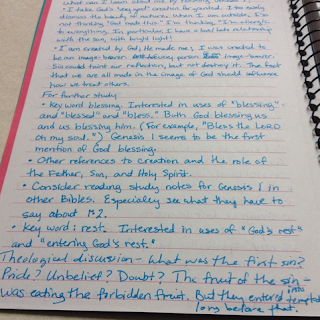 what can I learn about life by reading Genesis 1?
• I take God's "very good" creation for granted. I too easily
dismiss the beauty of nature. When I am outside, I'm
not thinking "God made this." I'm thinking, I'm
to everything. In particular, I have a bad/hate relationship
with the sun, with bright light!
• I am created by God; He made me; I was created to
be an image-bearer. person image-bearer.
Sin could taint our reflection, but not destroy it. The fact
that we are all made in the image of God should influence
how we treat others.
For further study
• Key word blessing. Interested in uses of "blessing"
and "blessed" and "bless." Both God blessing us
and us blessing him. (For example, "Bless the LORD
oh my soul.") Genesis 1 seems to be the first
mention of God blessing.
• Other references to Creation and the role of
the Father, Son, and Holy Spirit.
• Consider reading study notes for Genesis 1 in
other Bibles. Especially see what they have to
say about 1:2.
• Key word: rest. Interested in uses of "God's rest"
and "entering God's rest."
Theological discussion - What was the first sin?
Pride? Unbelief? Doubt? The fruit of the sin -
was eating the forbidden fruit. But they entered into
long before that.